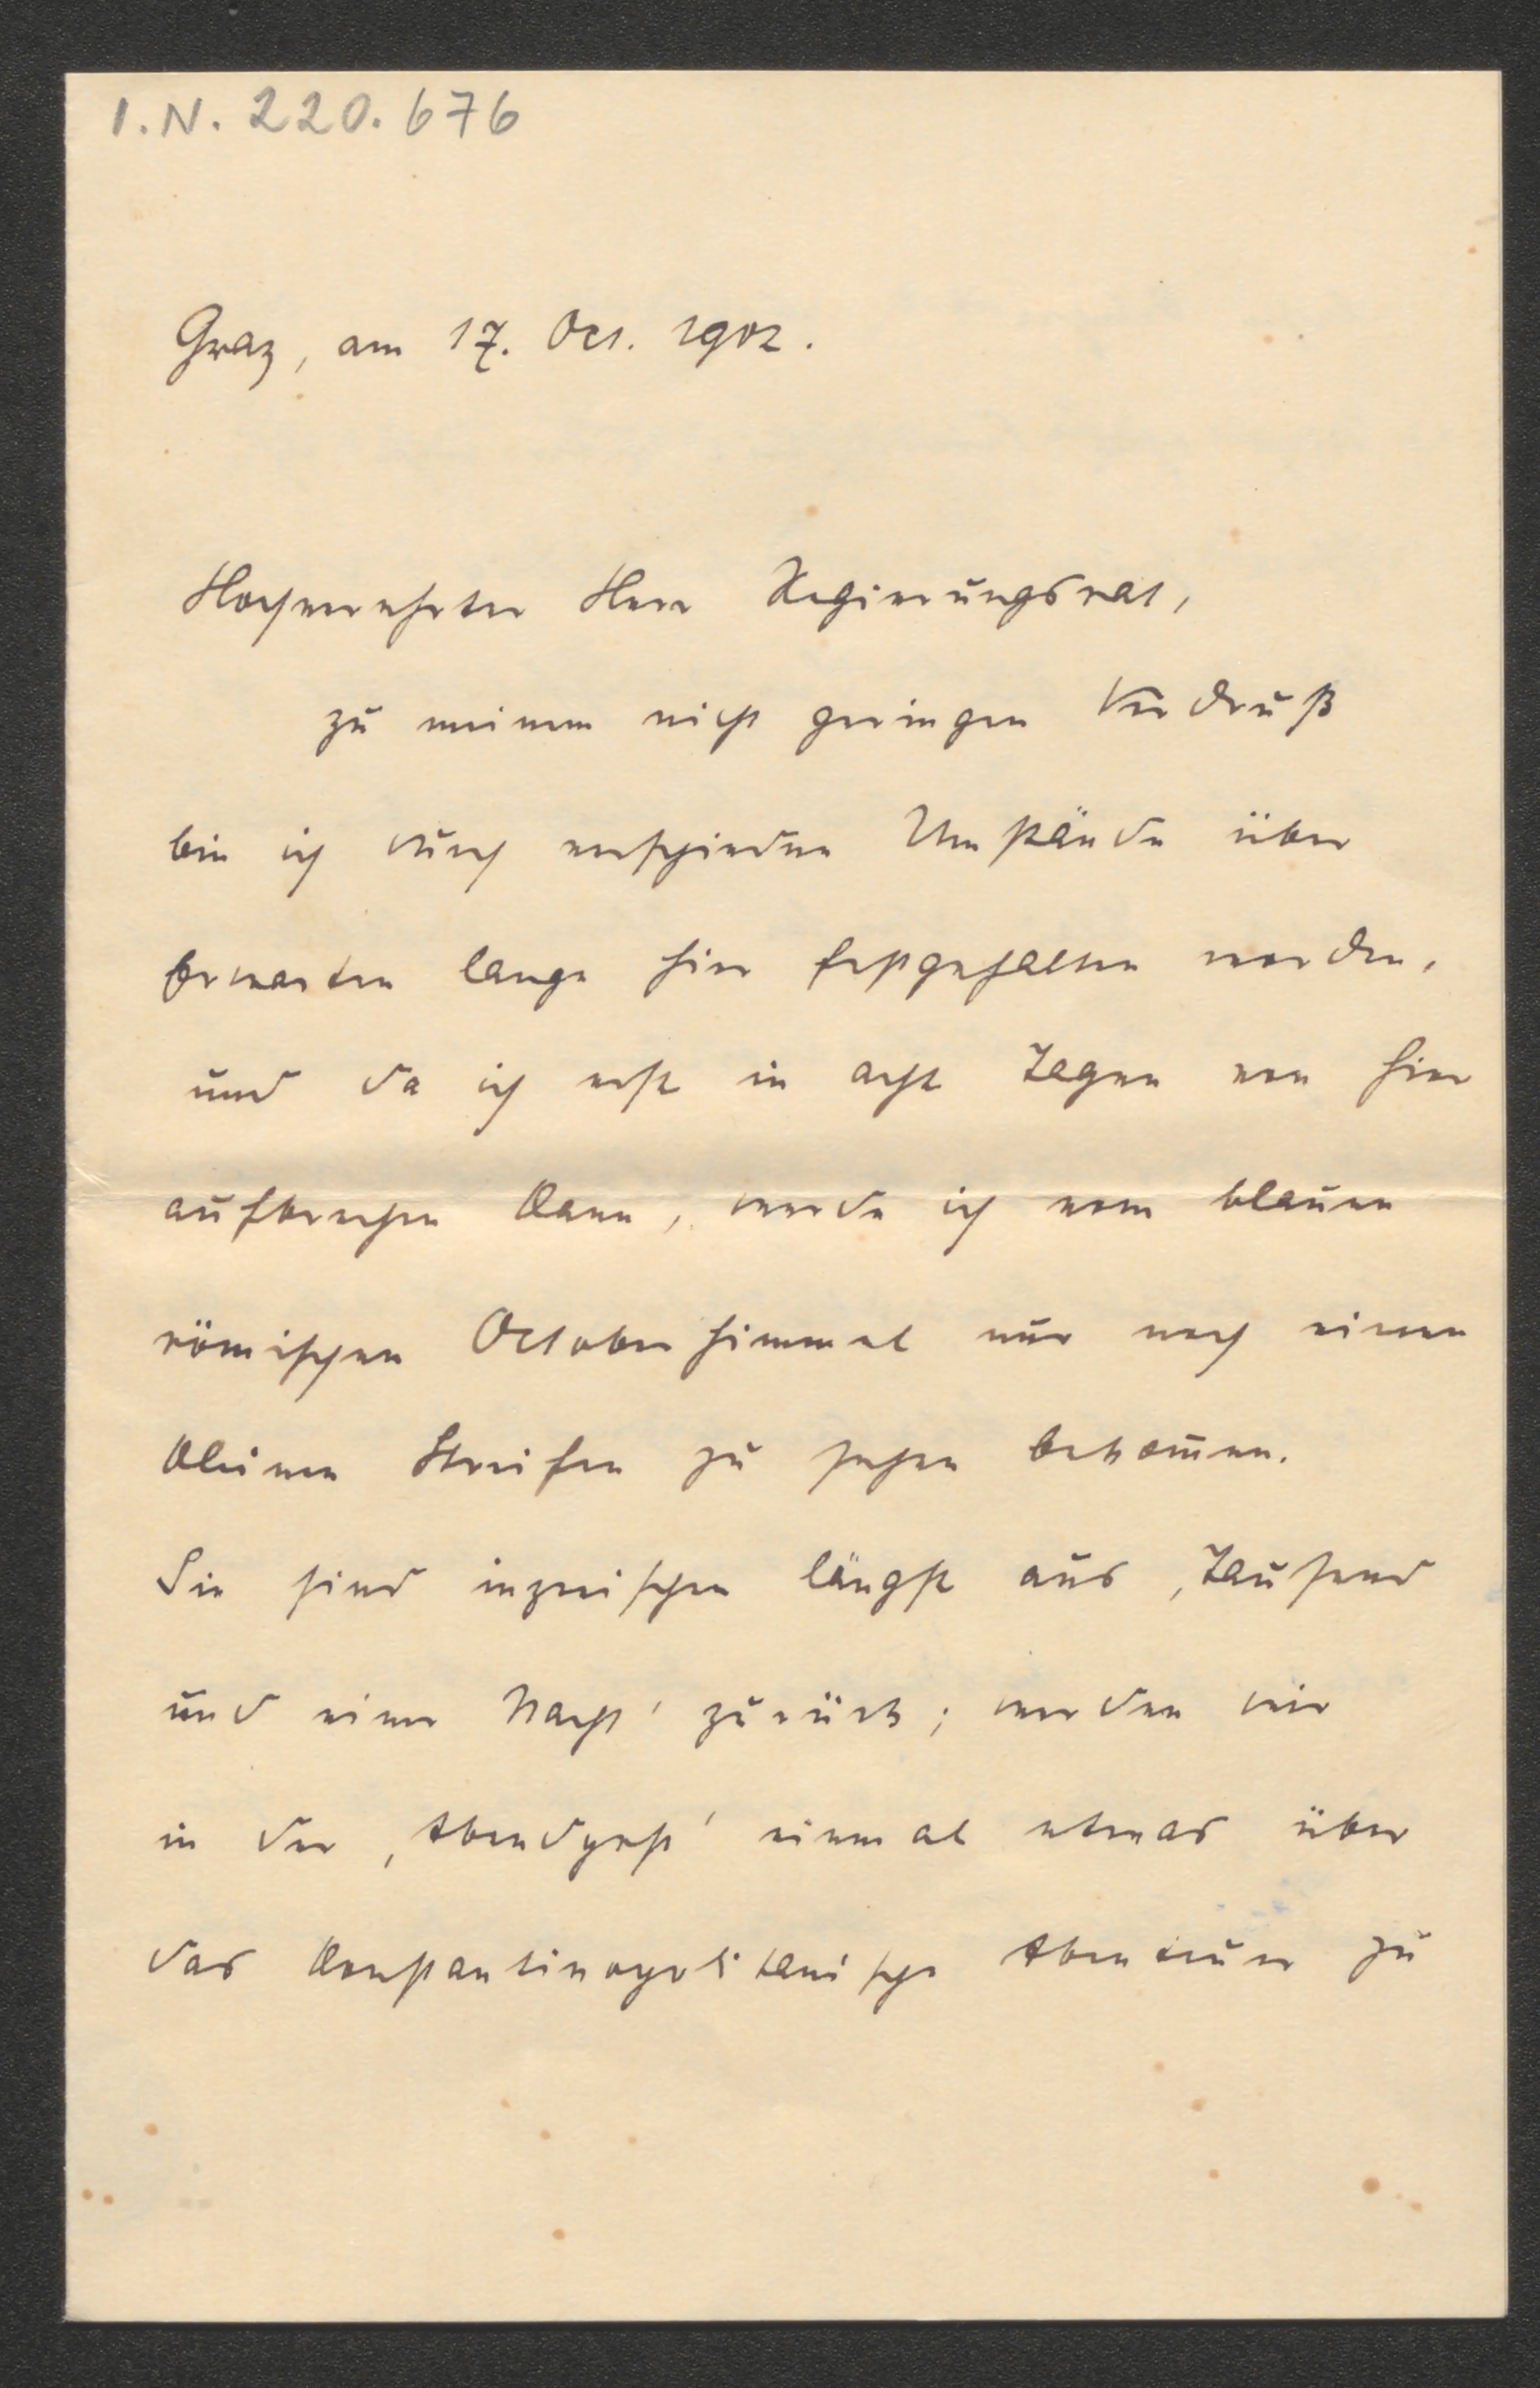 I.N. 220.676
Graz, am 17. Oct. 1902.
Hochverehrter Herr Regierungsrat,
zu meinem nicht geringen Verdruß
bin ich durch verschiedene Umstände über
Erwarten lange hier festgehalten worden,
und da ich erst in acht Tagen von hier
aufbrechen kann, werde ich vom blauen
römischen Octoberhimmel nur noch einen
kleinen Streifen zu sehen bekom̅en.
Sie sind inzwischen längst aus ‚Tausend
und einer Nacht‘ zurück; werden wir
in der ‚Abendpost‘ einmal etwas über
das konstantinopolitanische Abenteuer zu